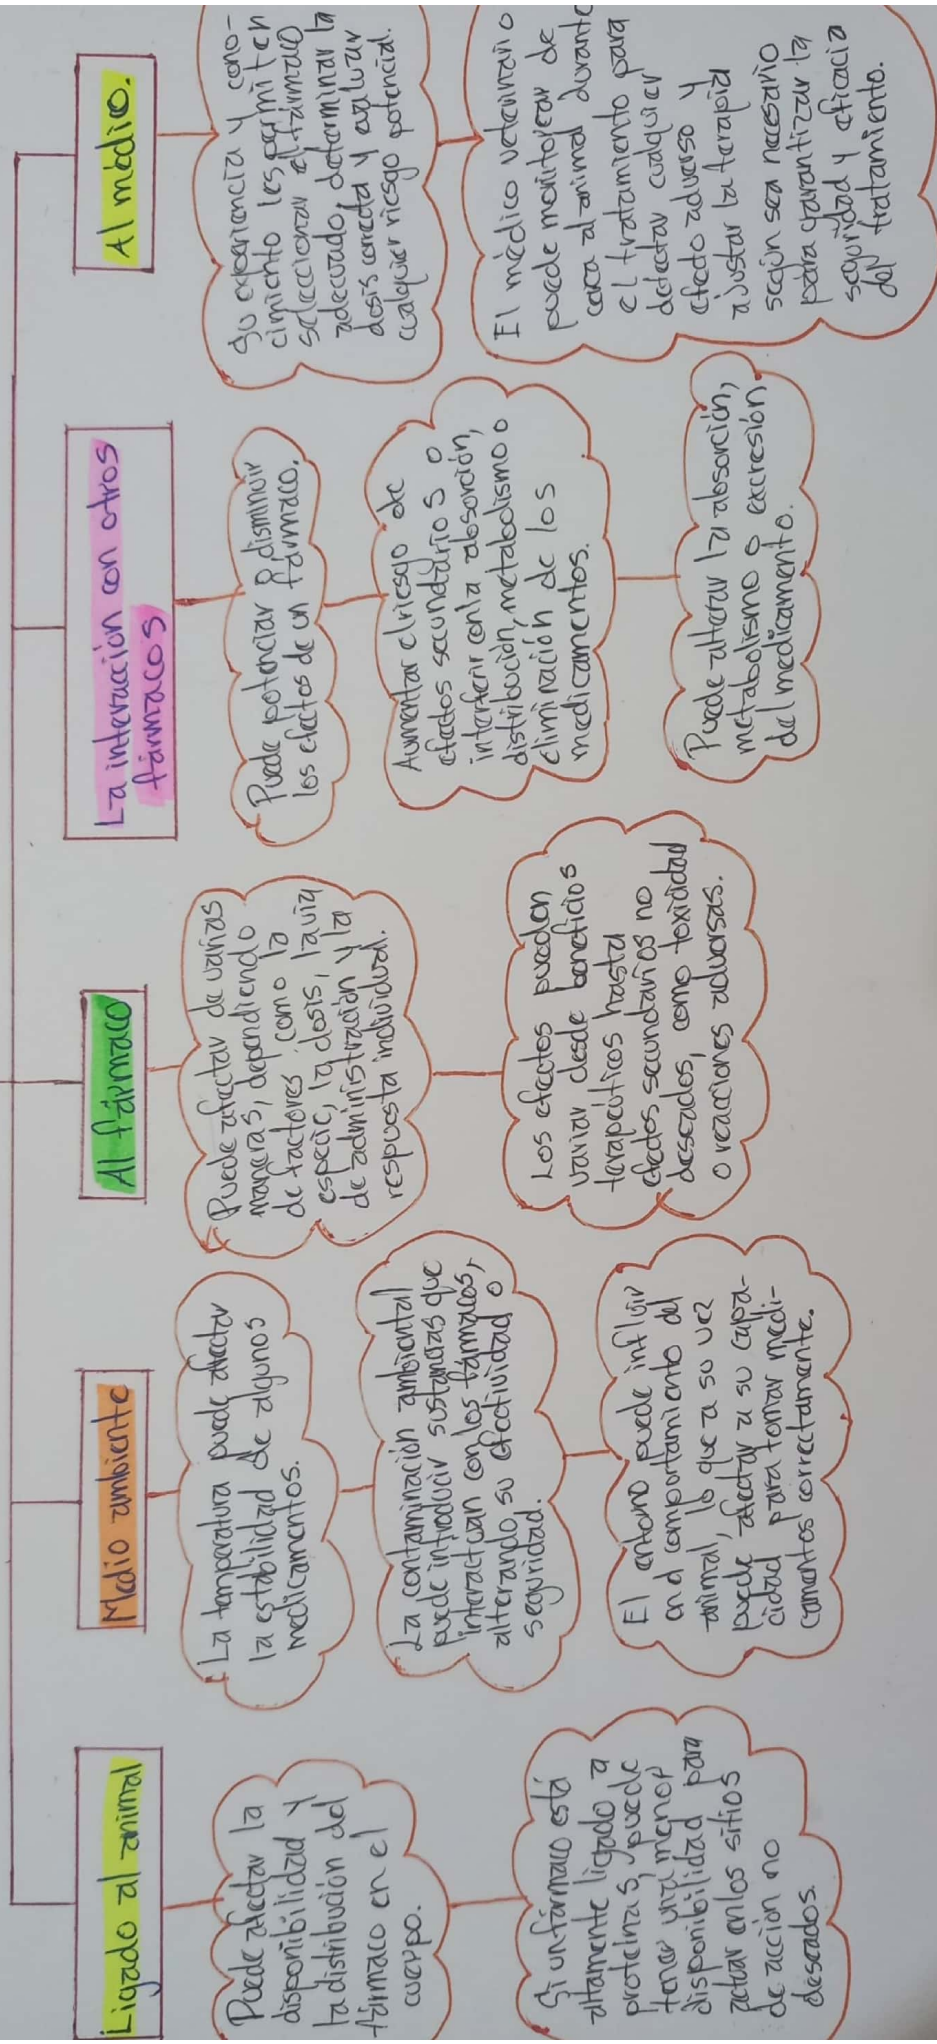 Ligado al animal
Puede afectar la
disponibilidad y
la distribución del
fármaco en el
cuerpo.
Si un fármaco está
altamente ligado a
proteínas, puede
tener una menor
disponibilidad para
actuar en los sitios
de acción no
deseados.
Medio ambiente
La temperatura puede afectar
la estabilidad de algunos
medicamentos.
La contaminación ambiental
puede introducir sustancias que
interactuan con los fármacos,
alterando su efectividad o
seguridad.
El entorno puede influir
en el comportamiento del
animal, lo que a su vez
puede afectar a su capa-
cidad para tomar medi-
camentos correctamente.
Al fármaco
Puede afectar de varias
maneras, dependiendo
de factores como la
especie, la dosis, la vía
de administración y la
respuesta individual.
Los efectos pueden
variar desde beneficios
terapéuticos hasta
efectos secundarios no
deseados, como toxicidad
o reacciones adversas.
La interaccion con otros
fármacos
Puede potenciar o disminuir
los efectos de un fármaco.
Aumentar el riesgo de
efectos secundarios o
interferir en la absorción,
distribución, metabolismo o
eliminación de los
medicamentos.
Puede alterar la absorción,
metabolismo o excresión
del medicamento.
Al médico.
Su experiencia y cono-
cimiento les permiten
seleccionar el fármaco
adecuado, determinar la
dosis correcta y evaluar
cualquier riesgo potencial.
El médico veterinario
puede monitorear de
cerca al animal durante
el tratamiento para
detectar cualquier
efecto adverso y
ajustar la terapia
según sea necesario
para garantizar la
seguridad y eficacia
del tratamiento.